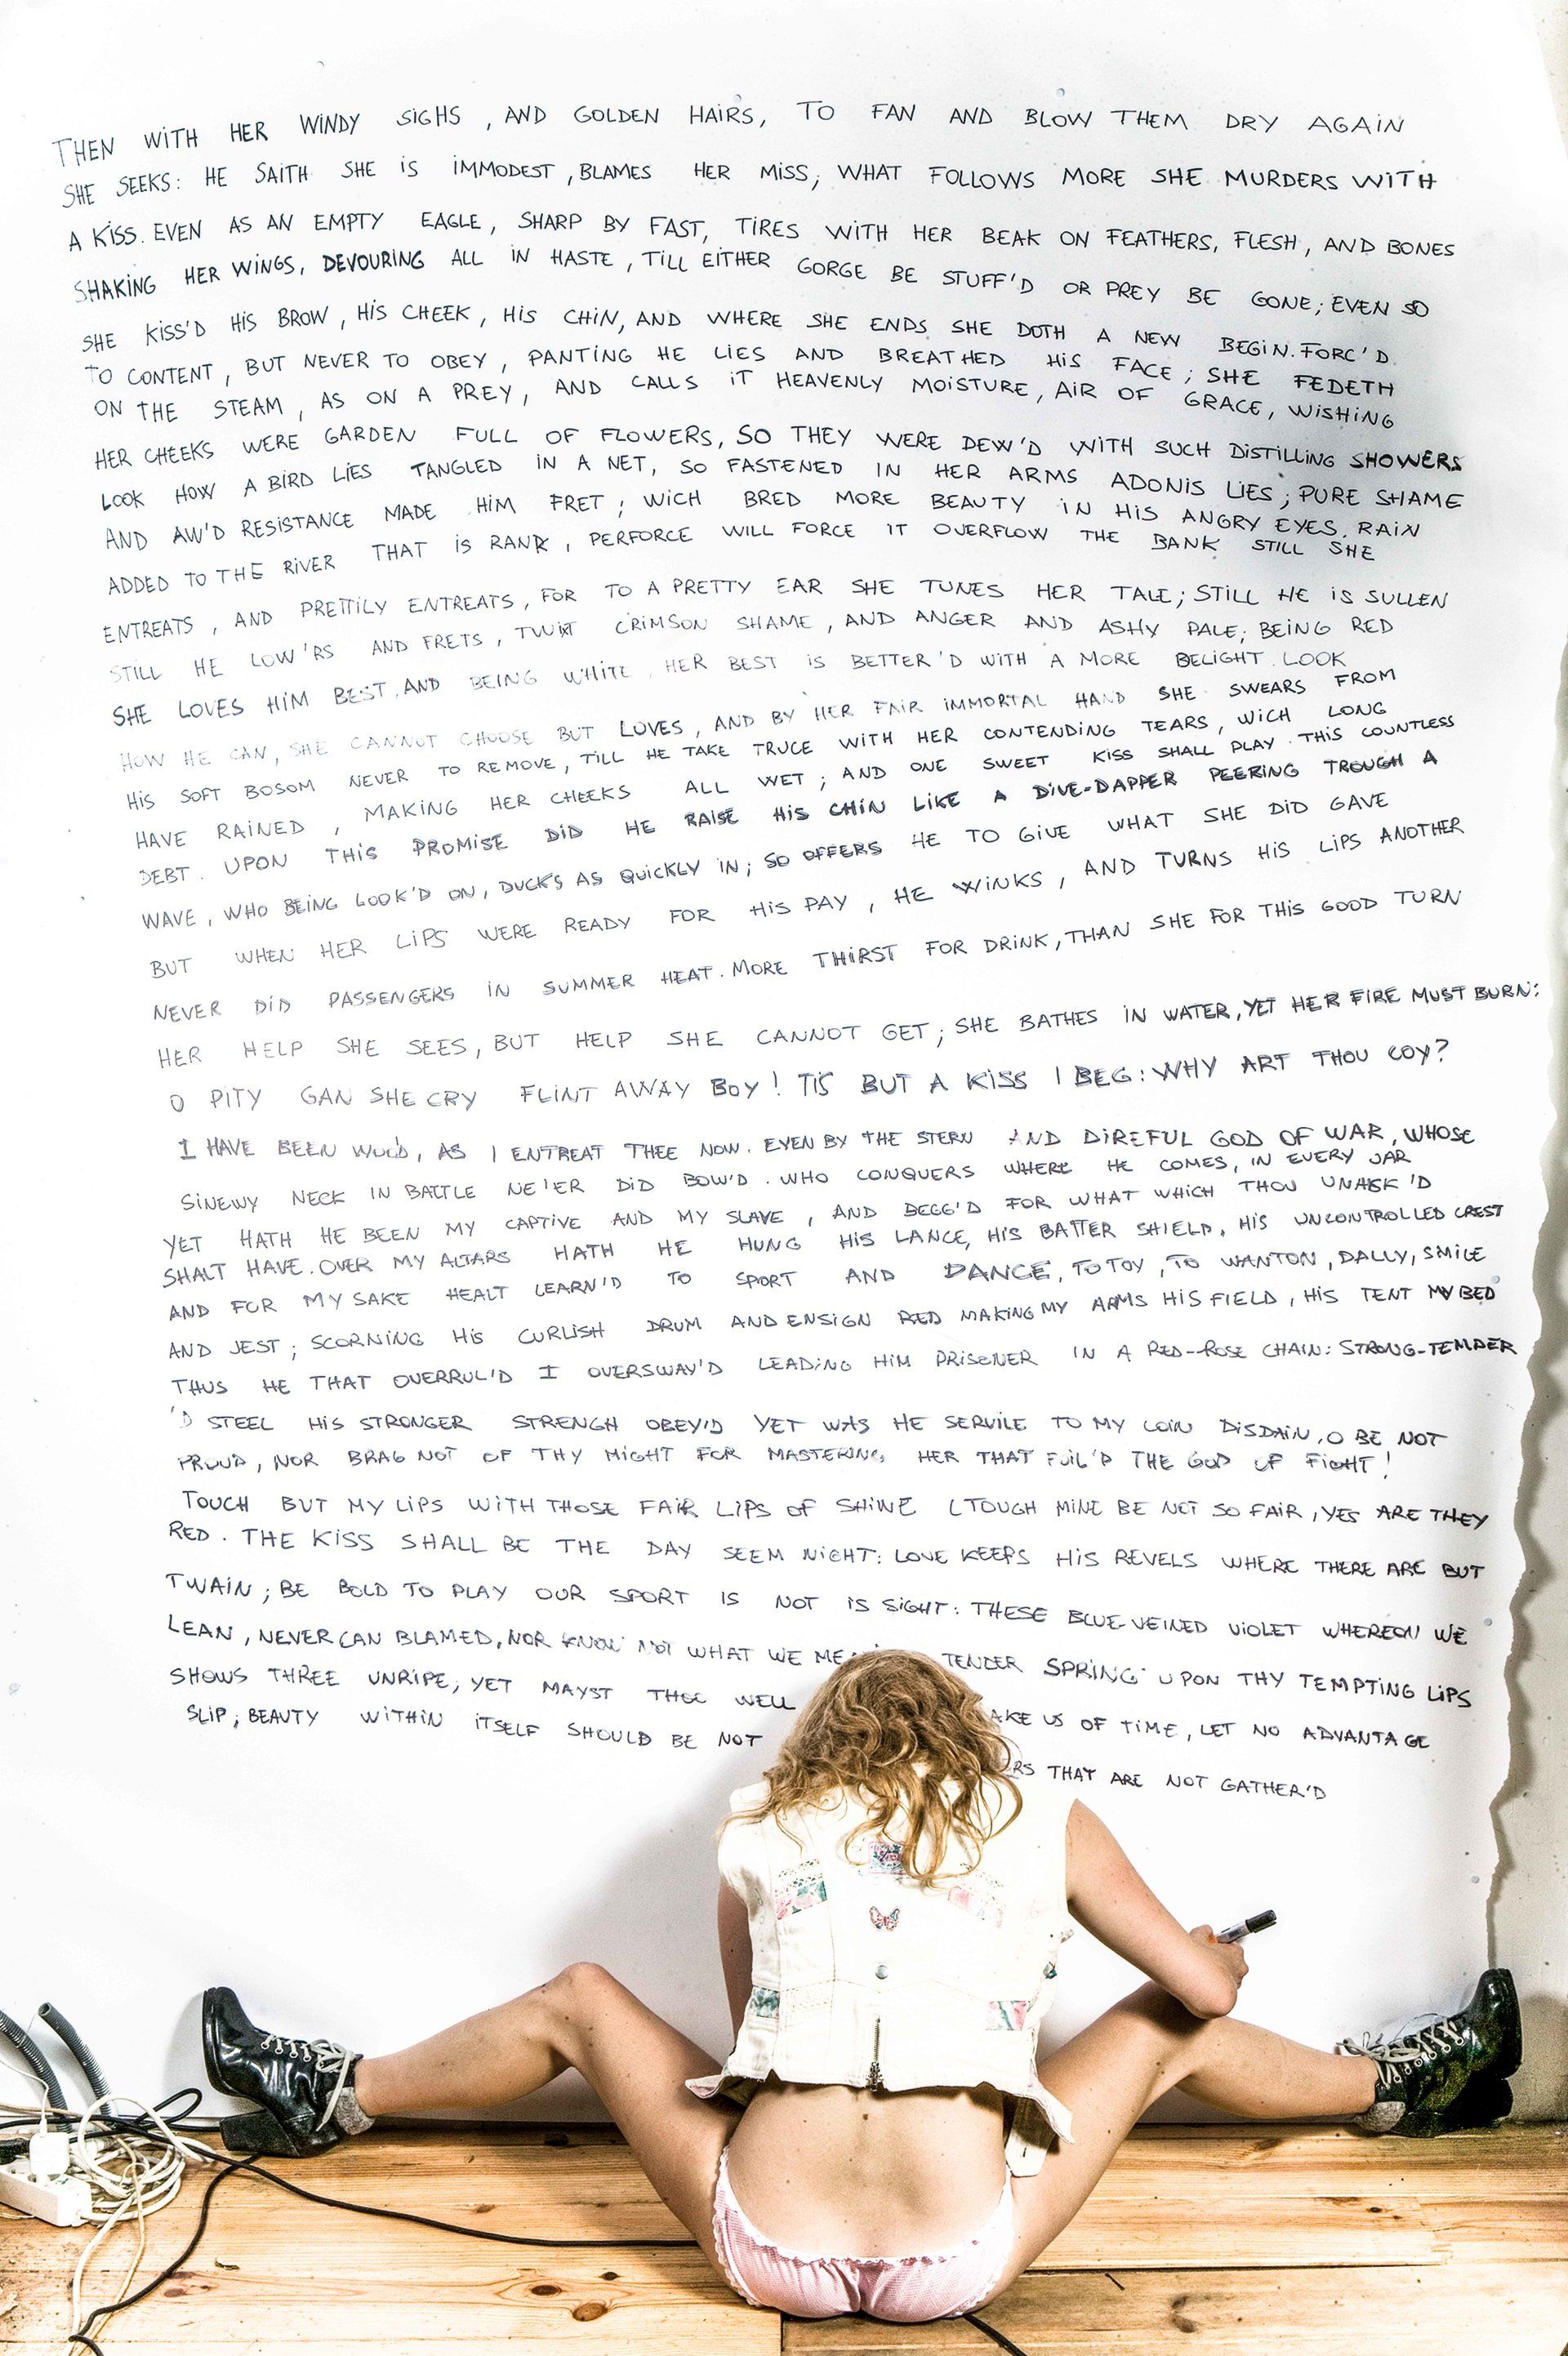 THEN WITH HER WINDY SIGHS , AND GOLDEN HAIRS, TO FAN AND BLOW THEM DRY AGAIN
SHE SEEKS: HE SAITH SHE IS IMMODEST , BLAMES HER MISS; WHAT FOLLOWS MORE SHE MURDERS WITH
A KISS. EVEN AS AN EMPTY EAGLE, SHARP BY FAST, TIRES WITH HER BEAK ON FEATHERS, FLESH, AND BONES
SHAKING HER WINGS, DEVOURING ALL IN HASTE , TILL EITHER GORGE BE STUFF'D OR PREY BE GONE; EVEN SO
SHE KISS'D HIS BROW , HIS CHEEK , HIS CHIN, AND WHERE SHE ENDS SHE DOTH A NEW BEGIN. FORC'D
TO CONTENT , BUT NEVER TO OBEY , PANTING HE LIES AND BREATHED HIS FACE ; SHE FEDETH
ON THE STEAM , AS ON A PREY, AND CALLS IT HEAVENLY MOISTURE, AIR OF GRACE, WISHING
HER CHEEKS WERE GARDEN FULL OF FLOWERS, SO THEY WERE DEW'D WITH SUCH DISTILLING SHOWERS
LOOK HOW A BIRD LIES TANGLED IN A NET, SO FASTENED IN HER ARMS ADONIS LIES ; PURE SHAME
AND AW'D RESISTANCE MADE HIM FRET ; WICH BRED MORE BEAUTY IN HIS ANGRY EYES. RAIN
ADDED TO THE RIVER THAT IS RANK , PERFORCE WILL FORCE IT OVERFLOW THE BANK STILL SHE
ENTREATS , AND PRETTILY ENTREATS , FOR TO A PRETTY EAR SHE TUNES HER TALE; STILL HE IS SULLEN
STILL HE LOW'RS AND FRETS , TWIXT CRIMSON SHAME , AND ANGER AND ASHY PALE; BEING RED
SHE LOVES HIM BEST. AND BEING WHITE , HER BEST IS BETTER'D WITH A MORE BELIGHT. LOOK
HOW HE CAN, SHE CANNOT CHOOSE BUT LOVES , AND BY HER FAIR IMMORTAL HAND SHE SWEARS FROM
HIS SOFT BOSOM NEVER TO REMOVE, TILL HE TAKE TRUCE WITH HER CONTENDING TEARS , WICH LONG
HAVE RAINED , MAKING HER CHEEKS ALL WET ; AND ONE SWEET KISS SHALL PLAY . THIS COUNTLESS
DEBT . UPON THIS PROMISE DID HE RAISE HIS CHIN LIKE A DIVE-DAPPER PEERING TROUGH A
WAVE , WHO BEING LOOK'D ON, DUCKS AS QUICKLY IN; SO OFFERS HE TO GIVE WHAT SHE DID GAVE
BUT WHEN HER LIPS WERE READY FOR HIS PAY , HE WINKS , AND TURNS HIS LIPS ANOTHER
NEVER DID PASSENGERS IN SUMMER HEAT. MORE THIRST FOR DRINK, THAN SHE FOR THIS GOOD TURN
HER HELP SHE SEES, BUT HELP SHE CANNOT GET ; SHE BATHES IN WATER, YET HER FIRE MUST BURN:
O PITY GAN SHE CRY FLINT AWAY BOY ! TIS BUT A KISS I BEG: WHY ART THOU COY?
I HAVE BEEN , AS I ENTREAT THEE NOW. EVEN BY THE STERN AND DIREFUL GOD OF WAR, WHOSE
SINEWY NECK IN BATTLE NE'ER DID BOW'D . WHO CONQUERS WHERE HE COMES, IN EVERY JAR
YET HATH HE BEEN MY CAPTIVE AND MY SLAVE , AND BEGG'D FOR WHAT WHICH THOU UNASK'D
SHALT HAVE. OVER MY ALTARS HATH HE HUNG HIS LANCE, HIS BATTER SHIELD, HIS UNCONTROLLED CREST
AND FOR MY SAKE HEALT LEARN'D TO SPORT AND DANCE, TO TOY , TO WANTON , DALLY, SMILE
AND JEST ; SCORNING HIS CURLISH DRUM AND ENSIGN RED MAKING MY ARMS HIS FIELD , HIS TENT MY BED
THUS HE THAT OVERRUL'D I OVERSWAY'D LEADING HIM PRISONER IN A RED-ROSE CHAIN: STRONG-TEMPER
'D STEEL HIS STRONGER STRENGH OBEY'D YET WAS HE SERVILE TO MY COIN DISDAIN , O BE NOT
PROUD , NOR BRAG NOT OF THY MIGHT FOR MASTERING HER THAT FOIL'D THE GOD OF FIGHT !
TOUCH BUT MY LIPS WITH THOSE FAIR LIPS OF SHINE (TOUGH MINE BE NOT SO FAIR , YES ARE THEY
RED . THE KISS SHALL BE THE DAY SEEM NIGHT: LOVE KEEPS HIS REVELS WHERE THERE ARE BUT
TWAIN ; BE BOLD TO PLAY OUR SPORT IS NOT IS SIGHT: THESE BLUE-VEINED VIOLET WHEREON WE
LEAN , NEVER CAN BLAMED, NOR KNOW NOT WHAT WE TENDER SPRING UPON THY TEMPTING LIPS
SHOWS THREE UNRIPE; YET MAYST THEE WELL AKE US OF TIME, LET NO ADVANTAGE
SLIP ; BEAUTY WITHIN ITSELF SHOULD BE NOT RS THAT ARE NOT GATHER'D